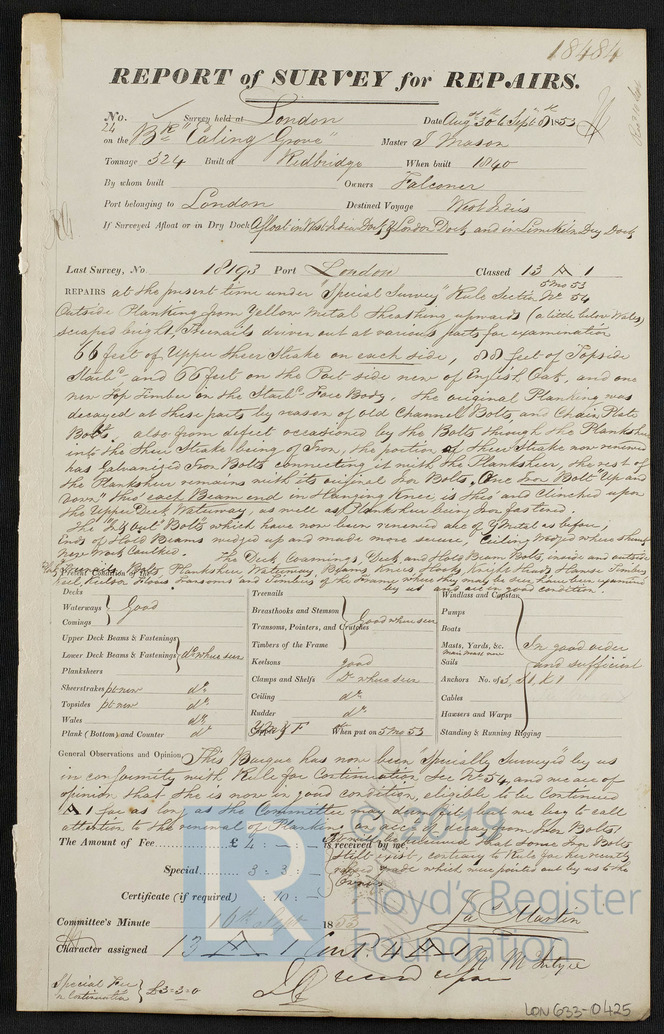 18484
REPORT of SURVEY for REPAIRS.
No. 24 Survey held at London Date Aug 30th to Sept 6th 1853
on the Bk "Ealing Grove" Master J Mason
Tonnage 324 Built at Redbridge When built 1840
By whom built Owners Falconer
Port belonging to London Destined Voyage West Indies
If Surveyed Afloat or in Dry Dock Afloat in West India Dock & London Dock, and in Limekiln Dry Dock
Last Survey, No. 18193 Port London Classed 13 A 1
5 mo 53
REPAIRS at the present time under "Special Survey" Rule Section No. 54
Outside Planking from Yellow Metal Sheathing upwards (a little below Wales)
scraped bright, Treenails driven out at various parts for examination
66 feet of Upper Sheer Strake on each side, 88 feet of Topside
Starbd and 66 feet on the Port side new of English Oak, and one
new Top Timber in the Starbd Fore Body. The original Planking was
decayed at these parts by reason of old Channel Bolts, and Chain Plate
Bolts, also from defect occasioned by the Bolts through the Planksheer
into the Sheer Strake being of Iron, the portion of Sheer Strake now renewed
has Galvanized Iron Bolts connecting it with the Planksheer, the rest of
the Planksheer remains with its original Iron Bolts. One Iron Bolt "Up and
down" thro' each Beam end in Hanging Knee is thro' and clinched upon
the Upper Deck Waterway, as well as Planksheer being Iron fastened.
The "In & Out" Bolts which have now been renewed are of Y Metal as before;
Ends of Hold Beams wedged up and made more secure, Ceiling wedged where
New Work Caulked. The Deck, Coamings, Deck and Hold Beam Bolts, inside and outside
Treenails, Bolts, Planksheer Waterway Beams Knees, Hooks Knight Heads Hawse Timbers
Present Condition of
Keel, Keelson Floors Transoms and Timbers of the Frame where they may be seen, have been examined
by us and are in good condition.
Decks
Waterways } Good
Comings
Upper Deck Beams & Fastenings
Lower Deck Beams & Fastenings } do where seen
Planksheers
Sheerstrakes pt new do
Topsides pt new do
Wales do
Plank (Bottom) and Counter do
Treenails
Breasthooks and Stemson
Transoms, Pointers, and Crutches } Good where seen
Timbers of the Frame
Keelsons good
Clamps and Shelfs do where seen
Ceiling do
Rudder do
When put on 5 mo 53
Windlass and Capstan
Pumps
Boats
Masts, Yards, &c.
main mast new
Sails
In good order and sufficient
Anchors No. of 3, 1, 1
Cables
Hawsers and Warps
Standing & Running Rigging
General Observations and Opinion, This Barque has now been Specially Surveyed by us
in conformity with Rule for Continuation, Sec No. 54, and we are of
opinion that she is now in good condition, eligible to be Continued
A 1 for as long as the Committee may deem fit, but we beg to call
attention to the renewal of Planking on acct of decay from Iron Bolts
The Amount of Fee £ 4 : - : - is received by me,
It will be perceived that some Iron Bolts
still exist, contrary to Rule for her
grade which were pointed out by us to the
Owners
Special 3 : 3 : -
Certificate (if required) : 10 : -
Js. Martin
Committee's Minute 16th Sept 1853
Character assigned 13 A 1 Cont. 4 A 1
Special Fee
in Continuation } £3=3=0
© 2019
LR
Lloyd's Register
Foundation
LON 633-0425